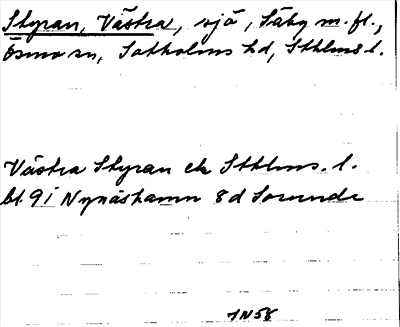 Styran, Västra, sjö, Säby m.fl.,
Ösmo sn, Sotholms hd, Sthlms l.
Västra Styran ek Sthlms. l.
bl. 91 Nynäshamn 8d Sorunda
IN58